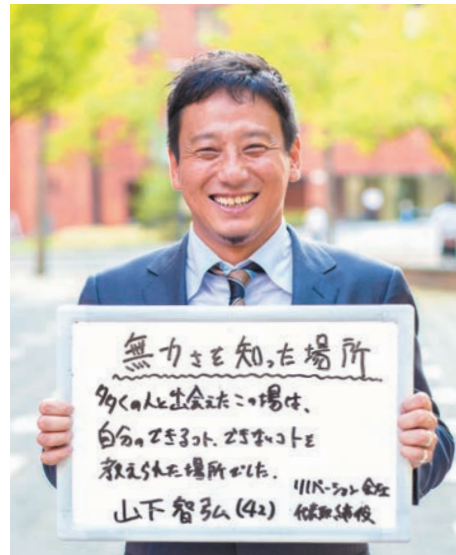 無力さを知った場所
多くの人と出会えたこの場は、
自分のできるコト、できないコトを
教えられた場所でした。
山下智弘(42)
リノベーション会社
代表取締役